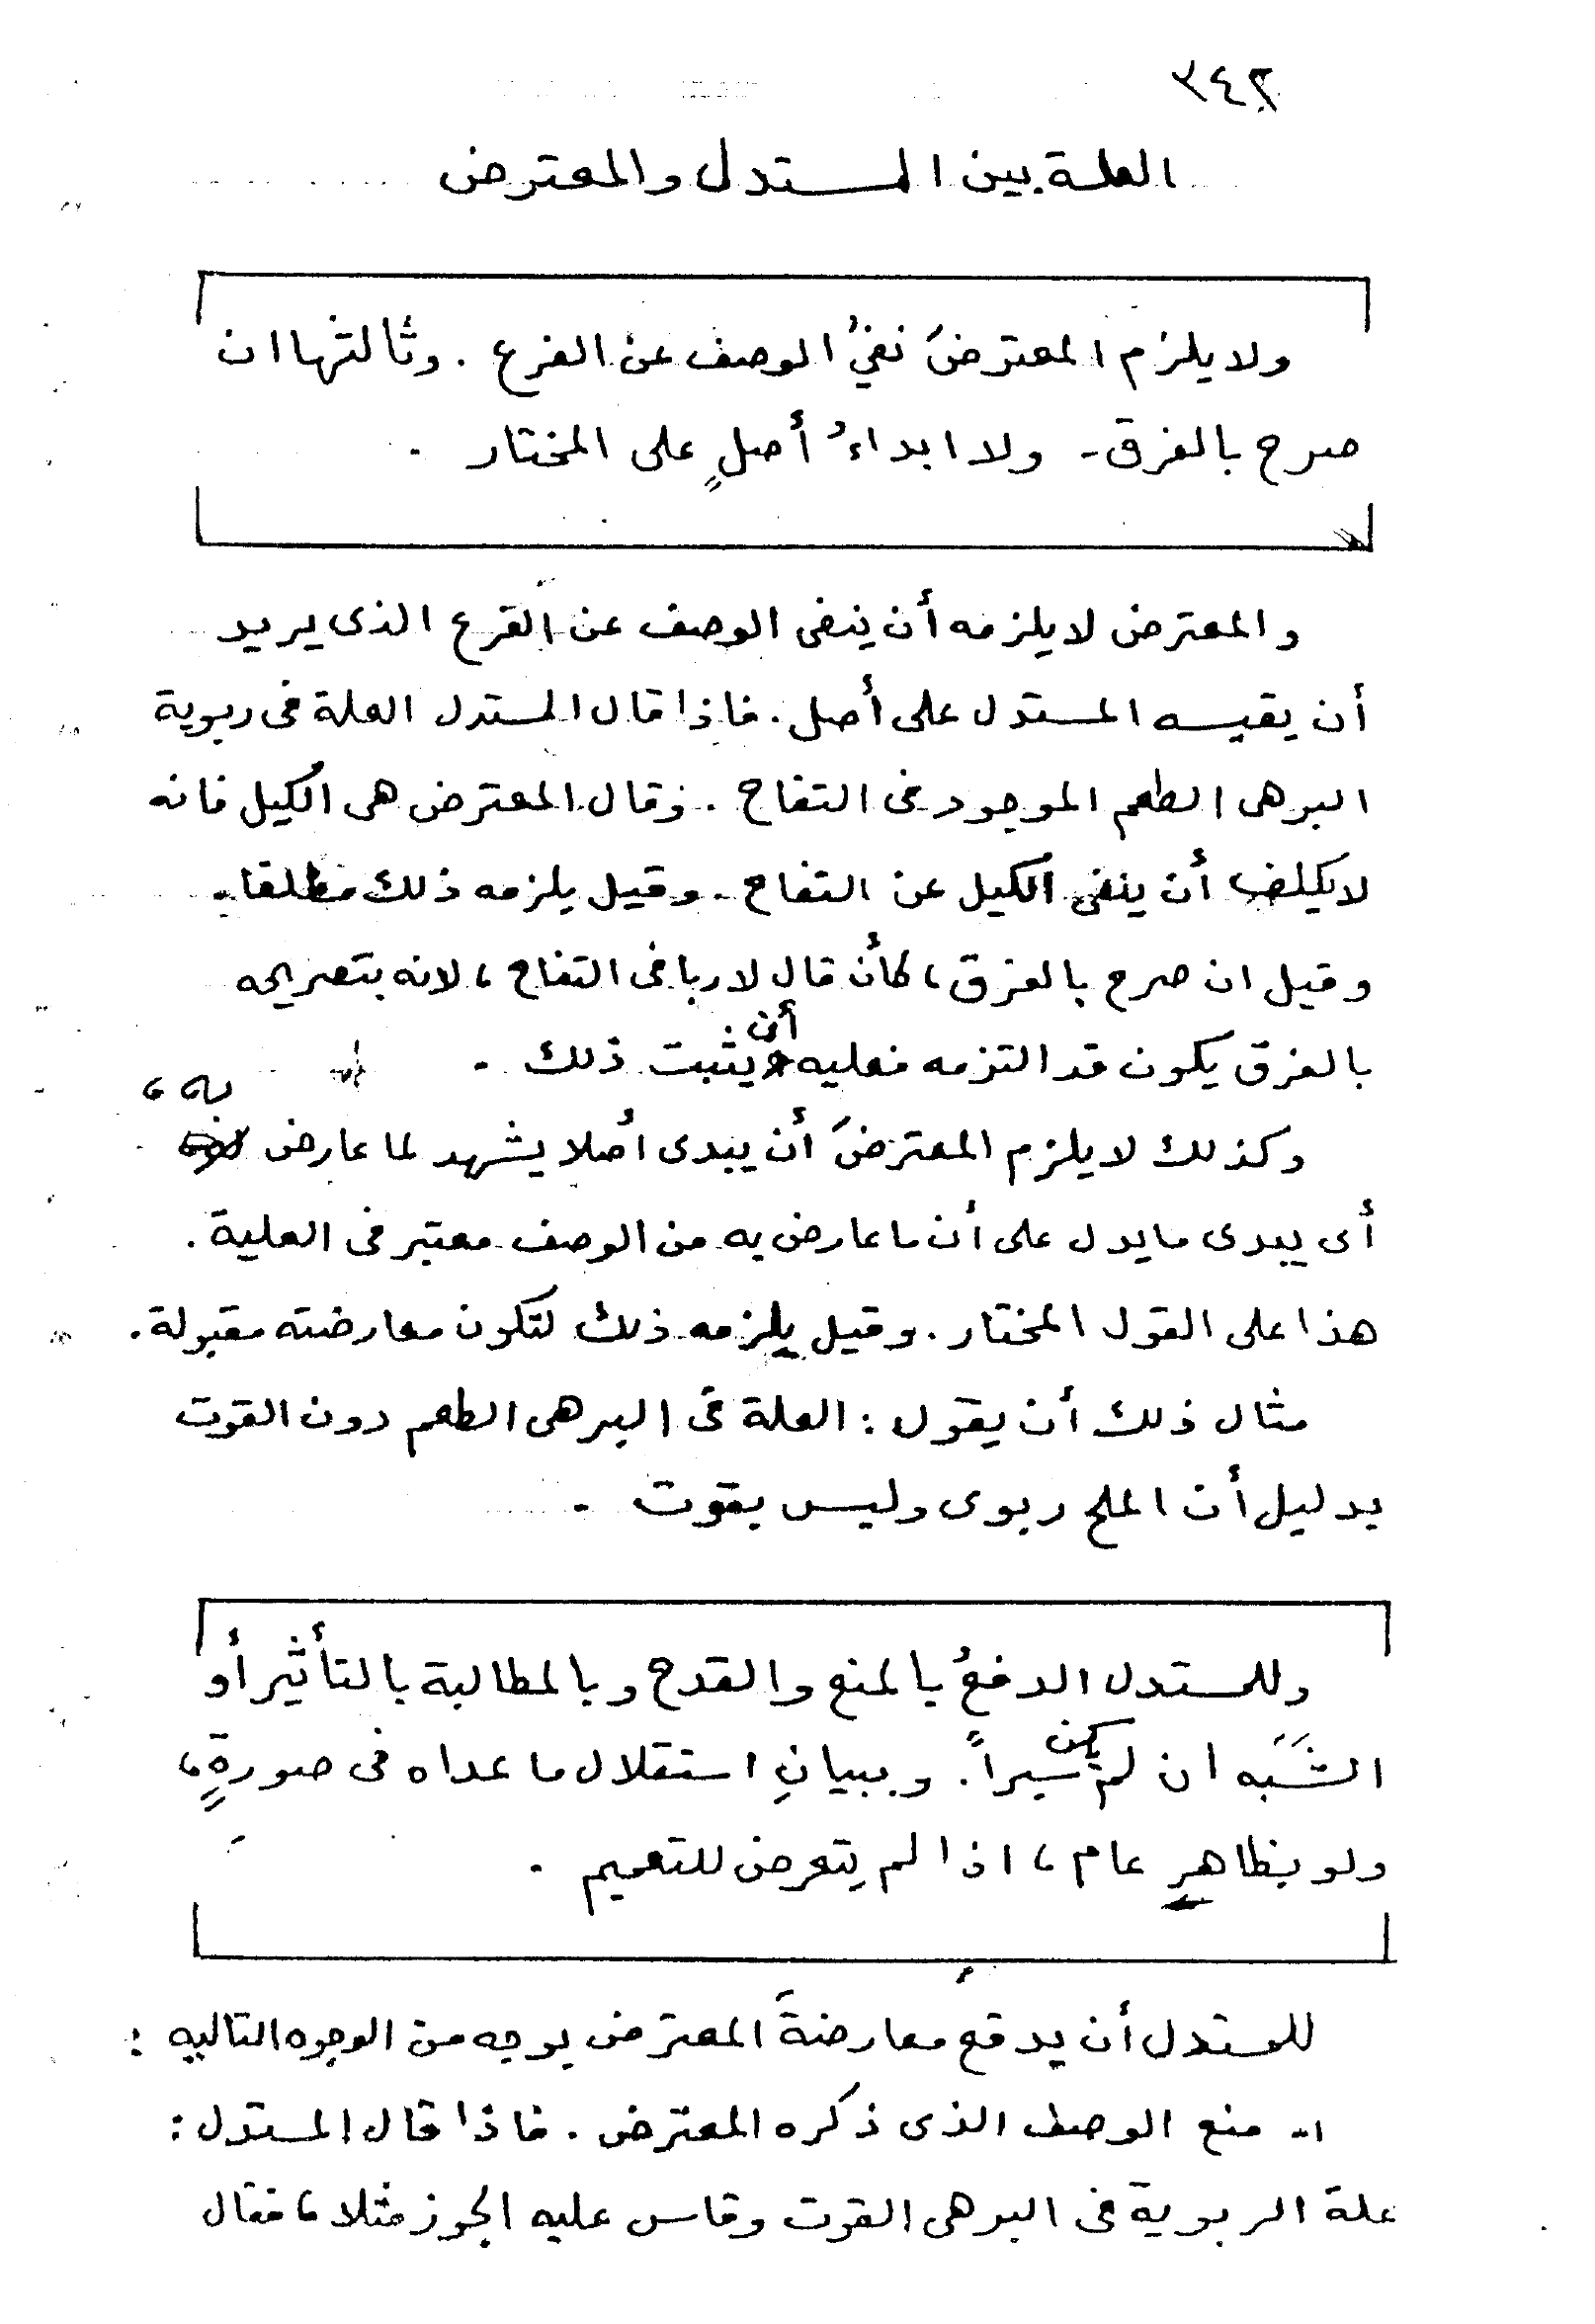 ٣٤٢
العلة بين المستدل والمعترض
ولا يلزم المعترضَ نفيُ الوصف عن الفرع . وثالثها ان
صرح بالفرق - ولا ابداءُ أصلٍ على المختار .
والمعترض لا يلزمه أن ينفى الوصف عن الفرع الذى يريد
أن يقيسه المستدل على أصل . فاذا قال المستدل العلة فى ربوية
البر هى الطعم الموجود فى التفاح . وقال المعترض هى الكيل فانه
لا يكلف أن ينفى الكيل عن التفاح . وقيل يلزمه ذلك مطلقا .
وقيل ان صرح بالفرق ، كأن قال لا ربا فى التفاح ، لانه بتصريحه
بالفرق يكون قد التزمه فعليه أن يثبت ذلك .
وكذلك لا يلزم المعترضَ أن يبدى أصلا يشهد لما عارض به ،
أى يبدى ما يدل على أن ما عارض به من الوصف معتبر فى العلية .
هذا على القول المختار . وقيل يلزمه ذلك لتكون معارضته مقبولة .
مثال ذلك أن يقول : العلة فى البر هى الطعم دون القوت
بدليل أن الملح ربوى وليس بقوت .
وللمستدل الدفعُ بالمنع والقدح وبالمطالبة بالتأثير أو
الشَبَه ان لم يكن سبراً . وببيانِ استقلال ما عداه فى صورةٍ ،
ولو بظاهرٍ عام ، اذا لم يتعرض للتعميم .
للمستدل أن يدفع معارضةَ المعترض بوجه من الوجوه التاليه :
١- منع الوصف الذى ذكره المعترض . فاذا قال المستدل :
علة الربوية فى البر هى القوت وقاس عليه الجوز مثلا ، فقال